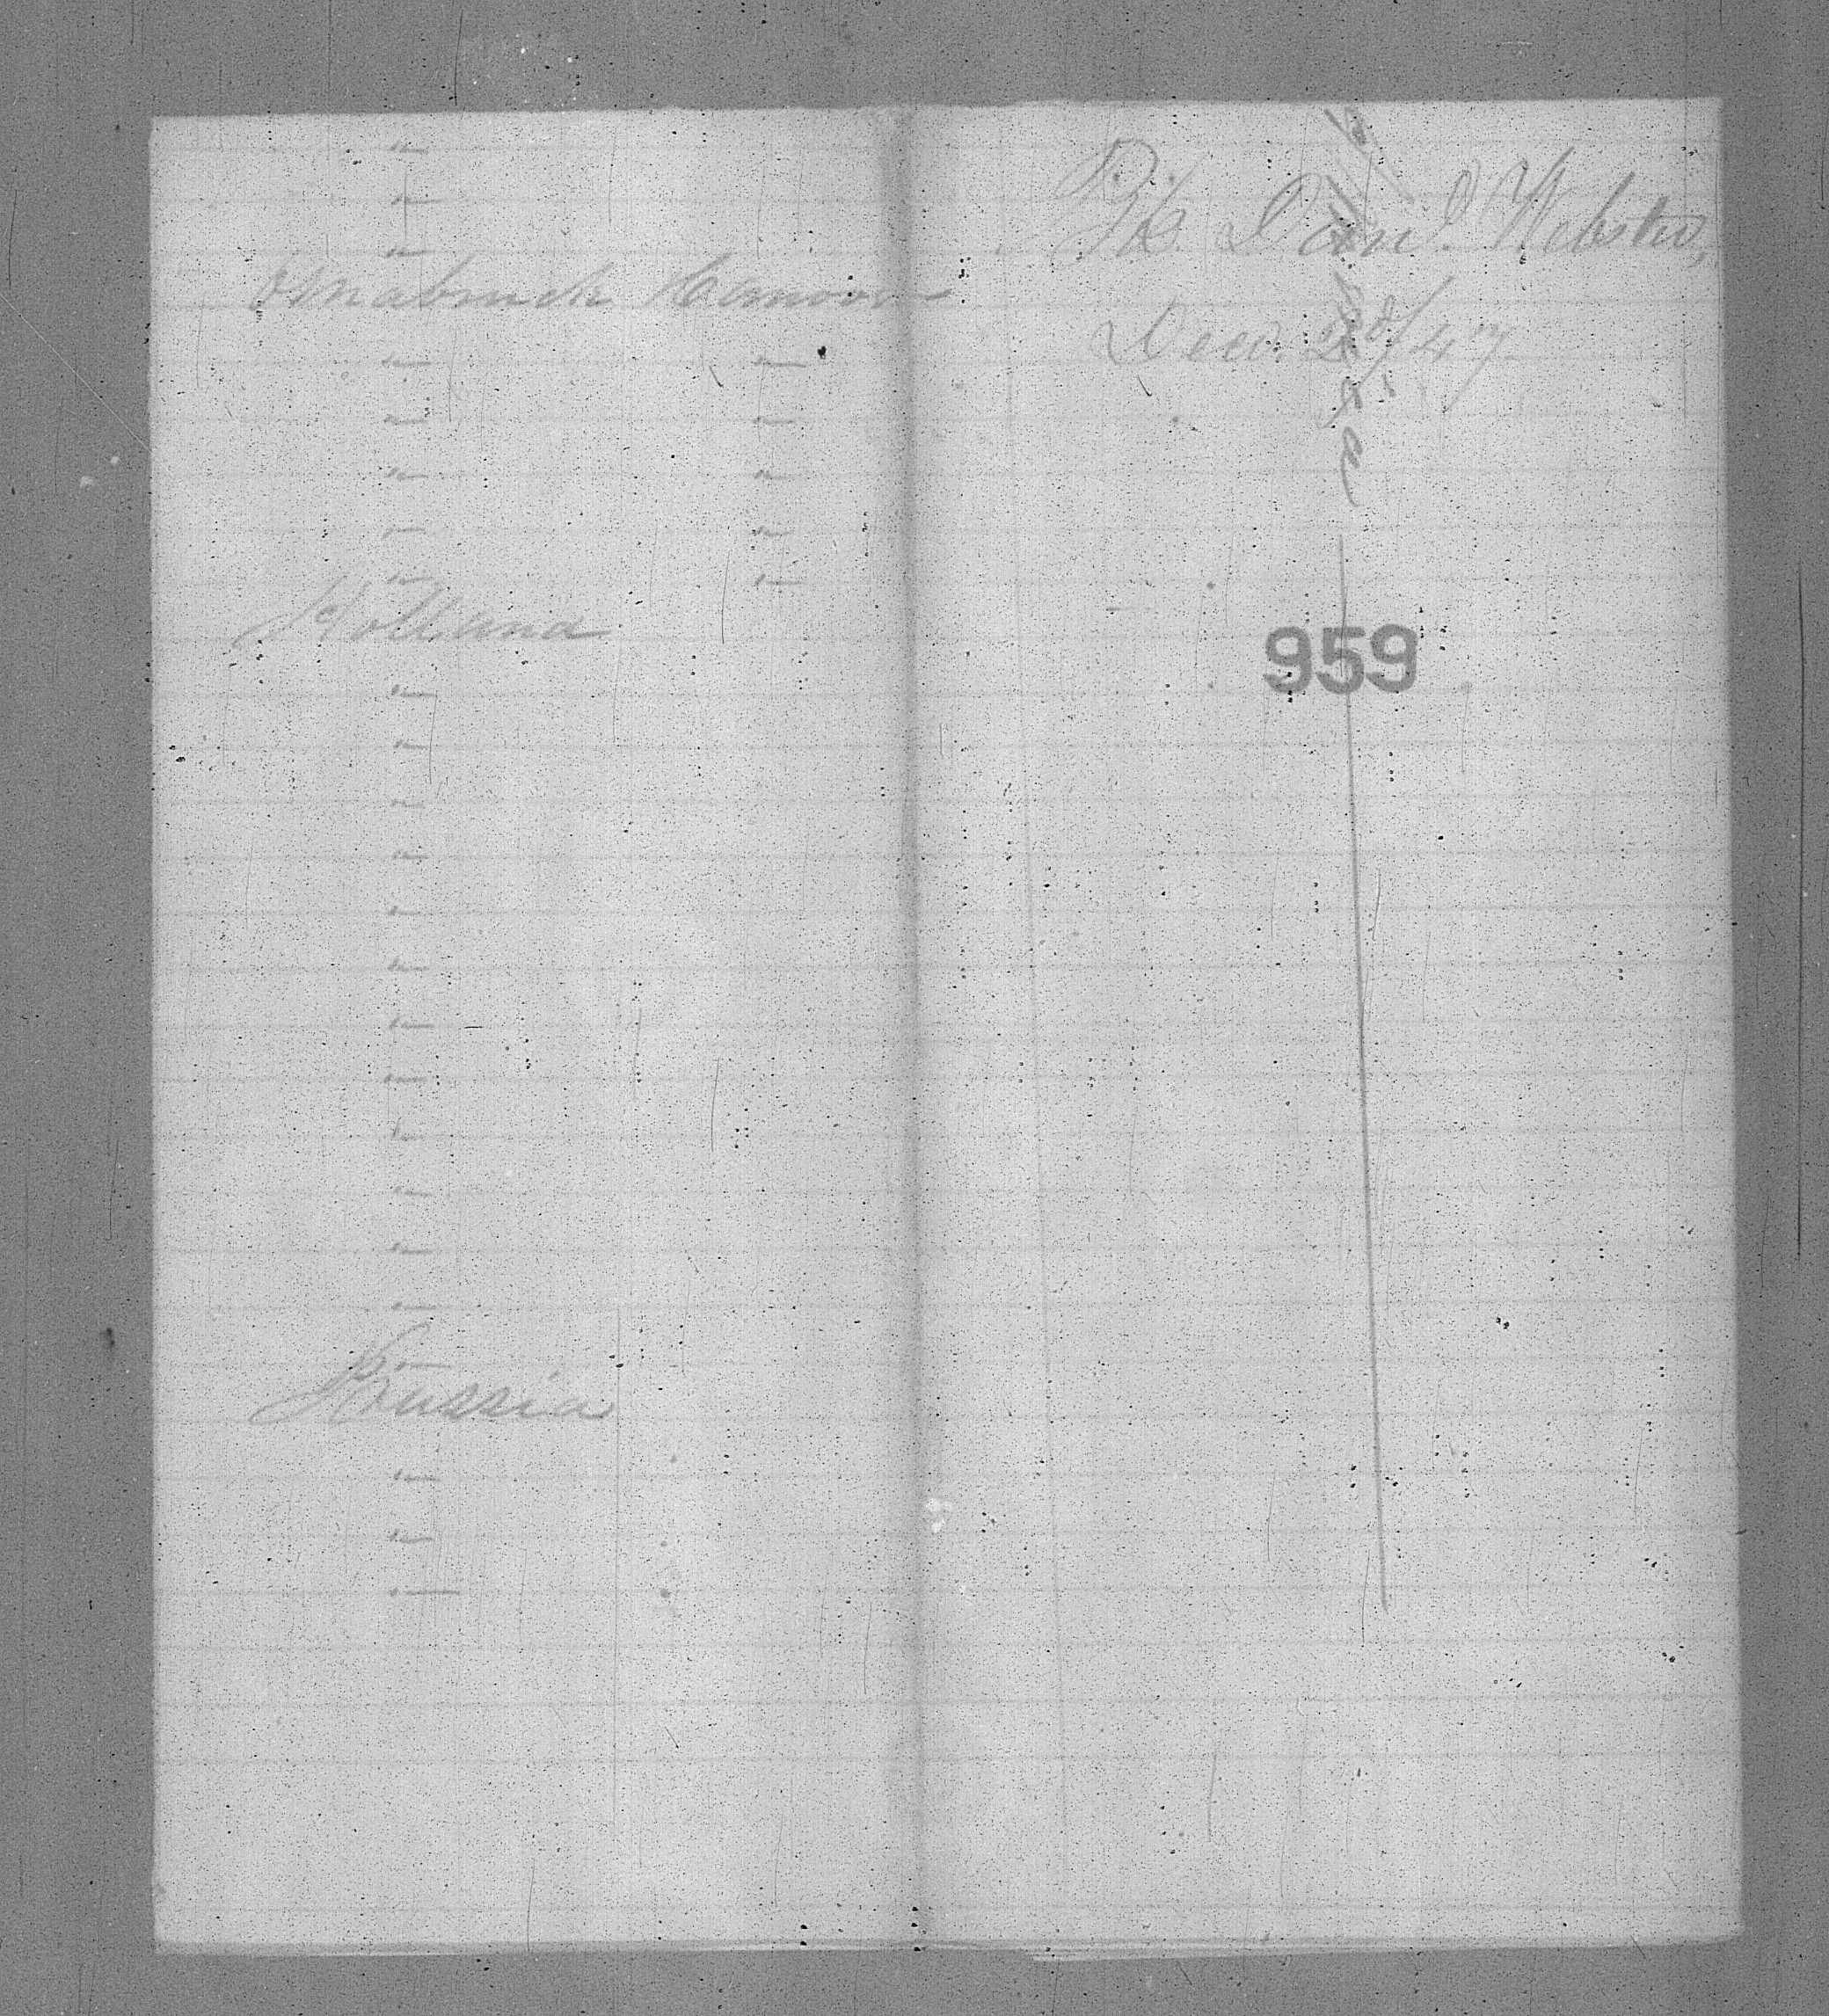 "
"
"
Osnabruck Hanover
" "
" "
" "
" "
" "
Holland
"
"
"
"
"
"
"
"
"
"
"
"
"
Prussia
"
"
"
Bk. Danl. Webster,
Dec. 2d/47
959